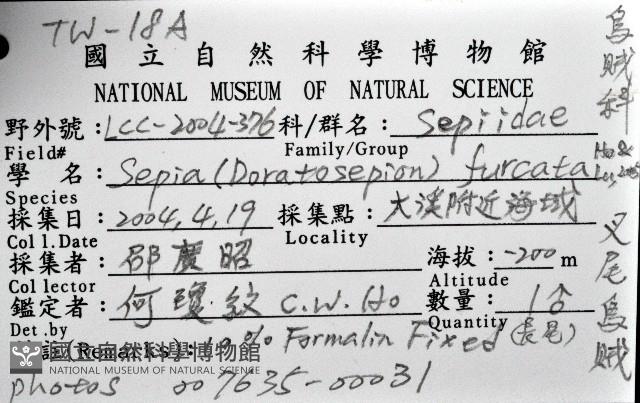 TW-18A
國立自然科學博物館
NATIONAL MUSEUM OF NATURAL SCIENCE
野外號：LCC-2004-376 科/群名：Sepiidae
Field# Family/Group
學 名：Sepia (Doratosepion) furcata Ho & Lu, 2005
Species
採集日：2004,4,19 採集點：大溪附近海域
Coll.Date Locality
採集者：邵廣昭 海拔：-200 m
Collector Altitude
鑑定者：何瓊紋 C.W. Ho 數量：1
Det.by Quantity
(Remarks)：10% Formalin Fixed
photos 007635-00031
烏賊科
叉尾烏賊
國立自然科學博物館
NATIONAL MUSEUM OF NATURAL SCIENCE